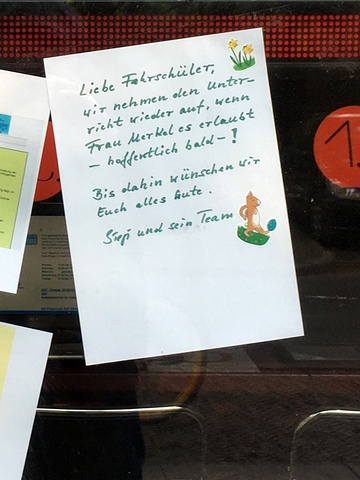 Liebe Fahrschüler,
wir nehmen den Unter-
richt wieder auf, wenn
Frau Merkel es erlaubt
– hoffentlich bald – !
Bis dahin wünschen wir
Euch alles Gute.
Sigi und sein Team
1.